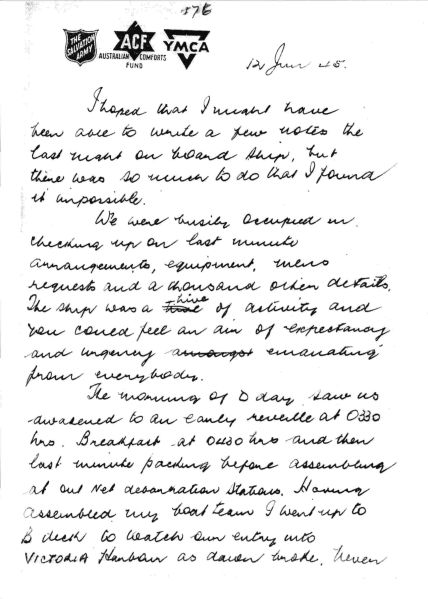 576
THE SALVATION ARMY
ACF
AUSTRALIAN COMFORTS FUND
YMCA
12 Jun 45.
I hoped that I might have
been able to write a few notes the
last night on board ship, but
there was so much to do that I found
it impossible.
We were busily occupied in
checking up on last minute
arrangements, equipment, mens
requests and a thousand other details.
The ship was a hive of activity and
you could feel an air of expectancy
and urgency amongst emanating
from everybody.
The morning of D day saw us
awakened to an early reveille at 0330
hrs. Breakfast at 0430 hrs and then
last minute packing before assembling
at our Net debarkation Stations. Having
assembled my boat team I went up to
B deck to watch our entry into
VICTORIA Harbour as dawn broke. Never